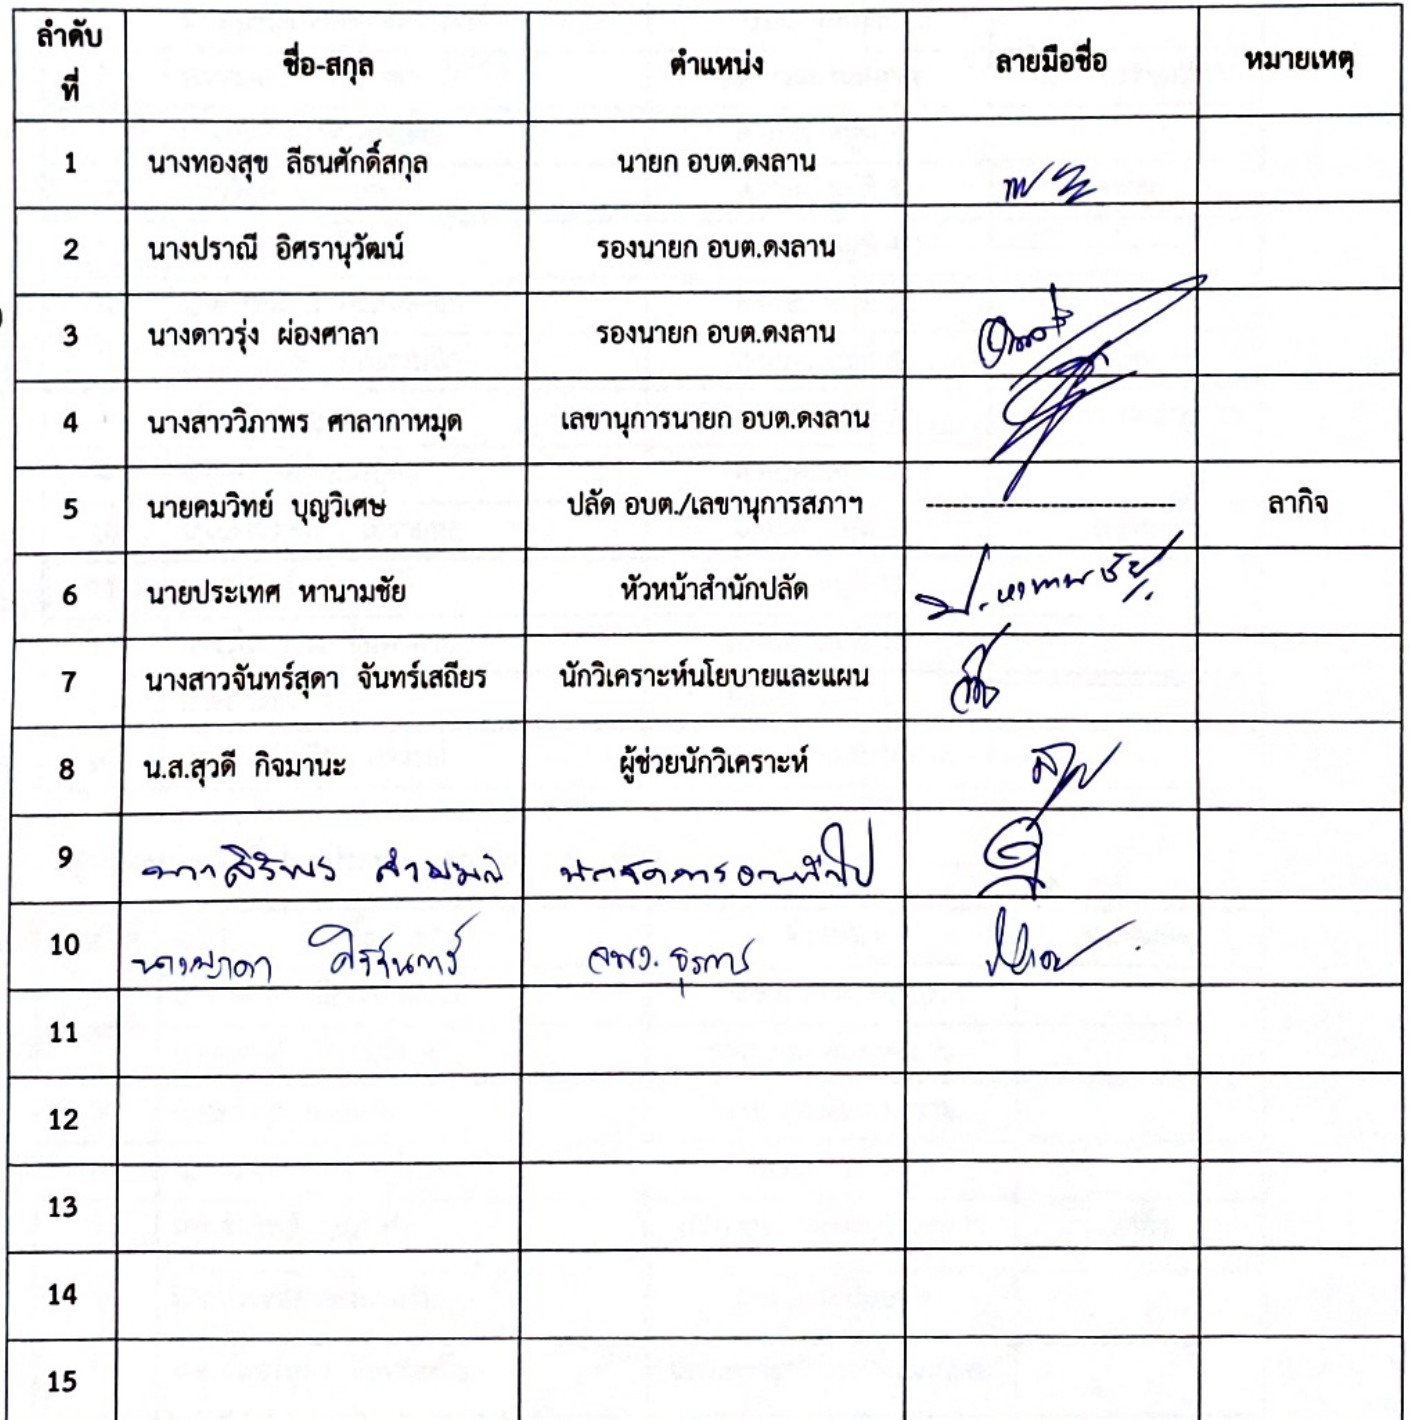 ลำดับ
ที่
ชื่อ-สกุล ตำแหน่ง ลายมือชื่อ หมายเหตุ
1 นางทองสุข ลีธนศักดิ์สกุล นายก อบต.ดงลาน
2 นางปราณี อิศรานุวัฒน์ รองนายก อบต.ดงลาน
3 นางดาวรุ่ง ผ่องศาลา รองนายก อบต.ดงลาน
4 นางสาววิภาพร ศาลากาหมุด เลขานุการนายก อบต.ดงลาน
5 นายคมวิทย์ บุญวิเศษ ปลัด อบต./เลขานุการสภาฯ ---------------------------- ลากิจ
6 นายประเทศ หานามชัย หัวหน้าสำนักปลัด ป. หานามชัย
7 นางสาวจันทร์สุดา จันทร์เสถียร นักวิเคราะห์นโยบายและแผน
8 น.ส.สุวดี กิจมานะ ผู้ช่วยนักวิเคราะห์
9 นักจัดการงานทั่วไป
10 จพง. ธุรการ
11
12
13
14
15